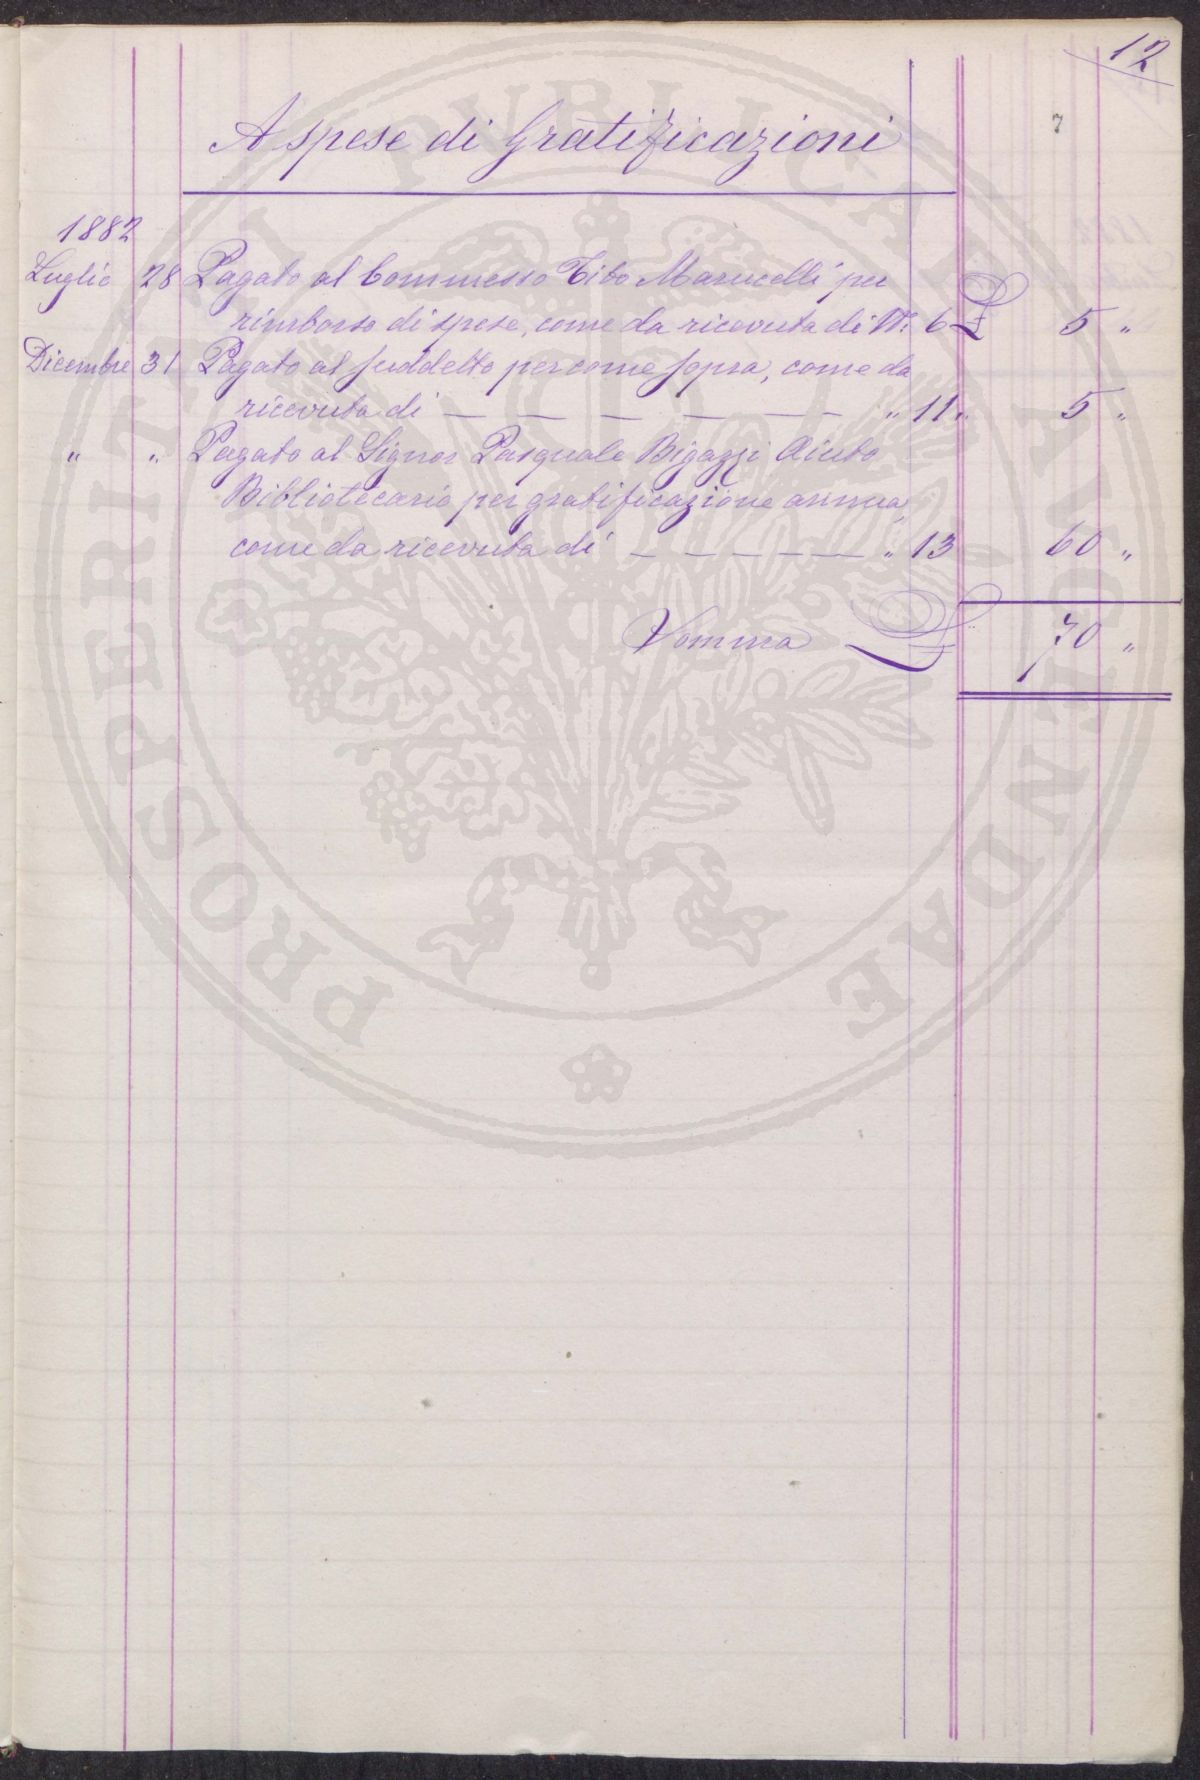 12
7
A spese di Gratificazioni
1882
Luglio 28 Pagato al Commesso Tito Marucelli per
rimborso di spese, come da ricevuta di N. 6 L 5 "
Dicembre 31 Pagato al suddetto per come sopra, come da
ricevuta di — — — — — — " 11 " 5 "
" " Pagato al Signor Pasquale Bigazzi Aiuto
Bibliotecario per gratificazione annua,
come da ricevuta di — — — — — — " 13 60 "
Somma L 70 "
PROSPERITATI PVBLICAE AVGENDAE